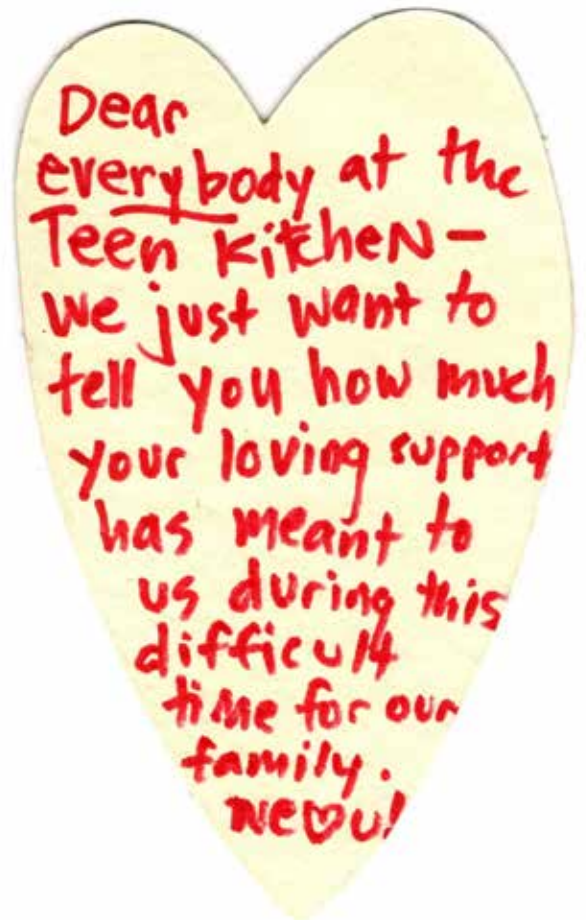 Dear
everybody at the
Teen KitcheN-
We just want to
tell you how much
your loving support
has meant to
us during this
difficult
time for our
family.
We♡u!